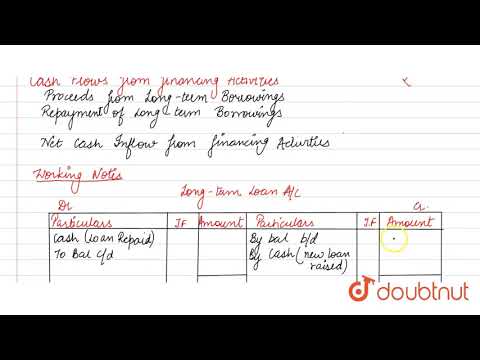 Cash Flows from financing Activities ₹
Proceeds from Long-term Borrowings
Repayment of Long term Borrowings
Net Cash Inflow from financing Activities
Working Notes
Long-term Loan A/c
Dr. Cr.
Particulars J.F Amount Particulars J.F Amount
Cash (Loan Repaid) By bal b/d
To Bal c/d By Cash (new loan
raised)
doubtnut